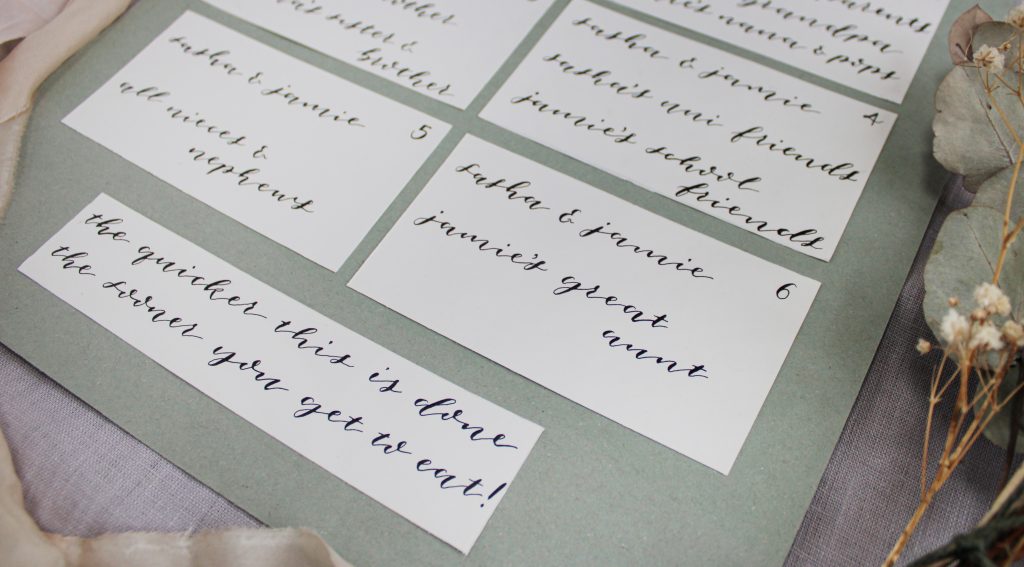 brother
sister &
brother
parents
grandpa
nana & pops
sasha & jamie
5
all nieces &
nephews
sasha & jamie
4
sasha's uni friends
jamie's school
friends
sasha & jamie
6
jamie's great
aunt
the quicker this is done
the sooner you get to eat!